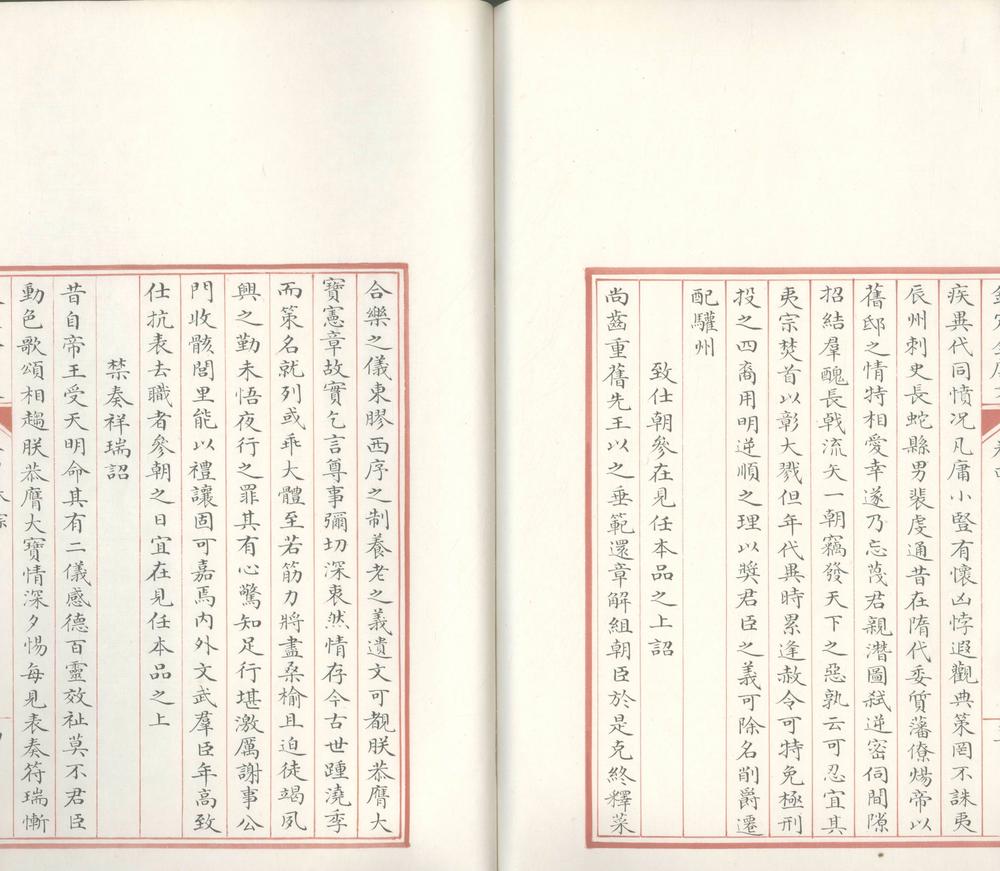 疾異代同憤况凡庸小豎有懷凶悖遐觀典策罔不誅夷
辰州刺史長蛇縣男裴虔通昔在隋代委質藩僚煬帝以
舊邸之情特相愛幸遂乃忘蔑君親潛圖弑逆密伺間隙
招結羣醜長戟流矢一朝竊發天下之惡孰云可忍宜其
夷宗焚首以彰大戮但年代異時累逢赦令可特免極刑
投之四裔用明逆順之理以奬君臣之義可除名削爵遷
配驩州
致仕朝參在見任本品之上詔
尚齒重舊先王以之垂範還章解組朝臣於是克終釋菜
合樂之儀東膠西序之制養老之義遺文可覩朕恭膺大
寶憲章故實乞言尊事彌切深衷然情存今古世踵澆季
而策名就列或乖大體至若筋力將盡桑榆且迫徒竭夙
興之勤未悟夜行之罪其有心驚知足行堪激厲謝事公
門收骸閭里能以禮讓固可嘉焉内外文武羣臣年高致
仕抗表去職者參朝之日宜在見任本品之上
禁奏祥瑞詔
昔自帝王受天明命其有二儀感德百靈效祉莫不君臣
動色歌頌相趨朕恭膺大寶情深夕惕每見表奏符瑞慚